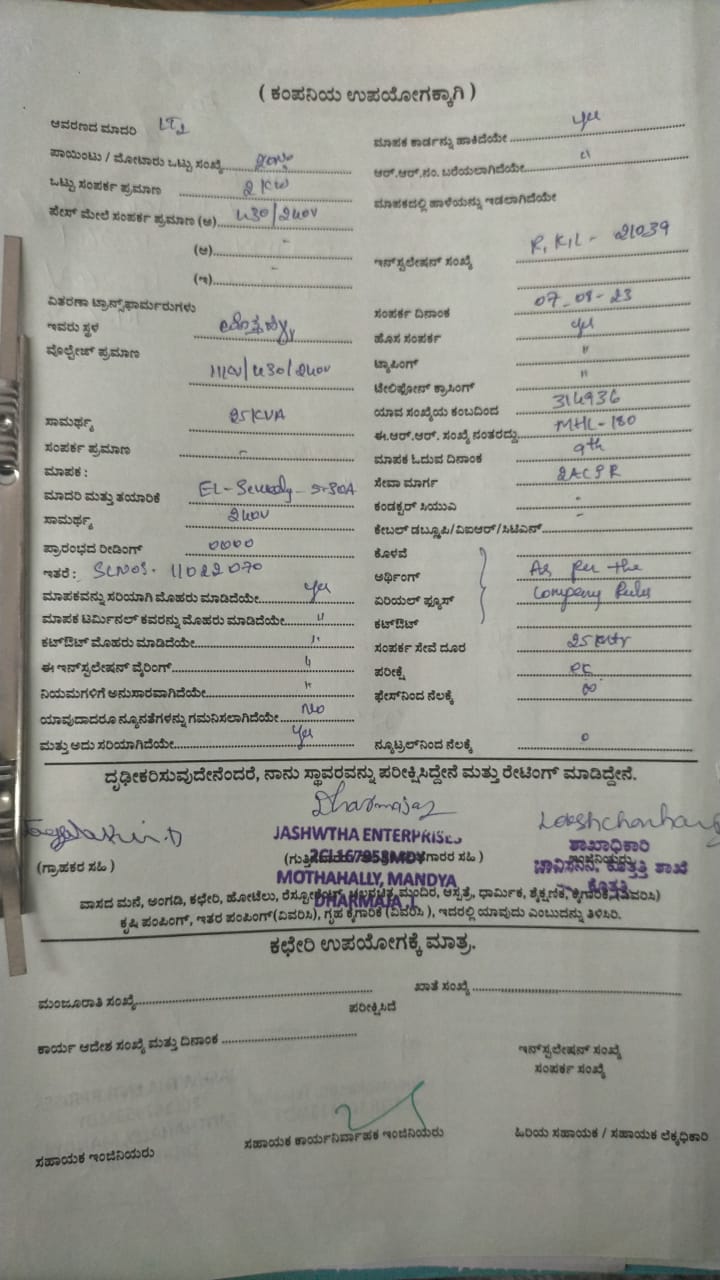 ( ಕಂಪನಿಯ ಉಪಯೋಗಕ್ಕಾಗಿ )
ಆವರಣದ ಮಾದರಿ LT2
ಪಾಯಿಂಟು / ಮೋಟಾರು ಒಟ್ಟು ಸಂಖ್ಯೆ
ಒಟ್ಟು ಸಂಪರ್ಕ ಪ್ರಮಾಣ 2 KW
ಪೇಸ್ ಮೇಲೆ ಸಂಪರ್ಕ ಪ್ರಮಾಣ (ಅ) 430/240V
(ಆ) -
(ಇ) -
ವಿತರಣಾ ಟ್ರಾನ್ಸ್‌ಫಾರ್ಮರುಗಳು
ಇವರು ಸ್ಥಳ
ವೋಲ್ಟೇಜ್ ಪ್ರಮಾಣ
11KV/430/240V
ಸಾಮರ್ಥ್ಯ 25KVA
ಸಂಪರ್ಕ ಪ್ರಮಾಣ -
ಮಾಪಕ :
ಮಾದರಿ ಮತ್ತು ತಯಾರಿಕೆ EL- 5-30A
ಸಾಮರ್ಥ್ಯ 240V
ಪ್ರಾರಂಭದ ರೀಡಿಂಗ್ 0000
ಇತರೆ : SLNOS. 11022070
ಮಾಪಕವನ್ನು ಸರಿಯಾಗಿ ಮೊಹರು ಮಾಡಿದೆಯೇ yes
ಮಾಪಕ ಟರ್ಮಿನಲ್ ಕವರನ್ನು ಮೊಹರು ಮಾಡಿದೆಯೇ "
ಕಟ್‌ಔಟ್ ಮೊಹರು ಮಾಡಿದೆಯೇ "
ಈ ಇನ್‌ಸ್ಟಲೇಷನ್ ವೈರಿಂಗ್ "
ನಿಯಮಗಳಿಗೆ ಅನುಸಾರವಾಗಿದೆಯೇ "
ಯಾವುದಾದರೂ ನ್ಯೂನತೆಗಳನ್ನು ಗಮನಿಸಲಾಗಿದೆಯೇ No
ಮತ್ತು ಅದು ಸರಿಯಾಗಿದೆಯೇ Yes
ಮಾಪಕ ಕಾರ್ಡನ್ನು ಹಾಕಿದೆಯೇ yes
ಆರ್.ಆರ್.ನಂ. ಬರೆಯಲಾಗಿದೆಯೇ "
ಮಾಪಕದಲ್ಲಿ ಹಾಳೆಯನ್ನು ಇಡಲಾಗಿದೆಯೇ
ಇನ್‌ಸ್ಟಲೇಷನ್ ಸಂಖ್ಯೆ R, KIL - 21039
ಸಂಪರ್ಕ ದಿನಾಂಕ 07-08-23
ಹೊಸ ಸಂಪರ್ಕ yes
ಟ್ಯಾಪಿಂಗ್ "
ಟೇಲಿಫೋನ್ ಕ್ರಾಸಿಂಗ್ "
ಯಾವ ಸಂಖ್ಯೆಯ ಕಂಬದಿಂದ 314936
ಈ.ಆರ್.ಆರ್. ಸಂಖ್ಯೆ ನಂತರದ್ದು MHL-180
ಮಾಪಕ ಓದುವ ದಿನಾಂಕ 9th
ಸೇವಾ ಮಾರ್ಗ 2ACSR
ಕಂಡಕ್ಟರ್ ಸಿಯುವಿ -
ಕೇಬಲ್ ಡಬ್ಲ್ಯೂಪಿ/ವಿಐಆರ್/ಸಿಟಿಎನ್ -
ಕೊಳವೆ
ಅರ್ಥಿಂಗ್ As per the
ಏರಿಯಲ್ ಫ್ಯೂಸ್ Company Rules
ಕಟ್‌ಔಟ್
ಸಂಪರ್ಕ ಸೇವೆ ದೂರ
ಪರೀಕ್ಷೆ
ಫೇಸ್‌ನಿಂದ ನೆಲಕ್ಕೆ ∞
ನ್ಯೂಟ್ರಲ್‌ನಿಂದ ನೆಲಕ್ಕೆ 0
ದೃಢೀಕರಿಸುವುದೇನೆಂದರೆ, ನಾನು ಸ್ಥಾವರವನ್ನು ಪರೀಕ್ಷಿಸಿದ್ದೇನೆ ಮತ್ತು ರೇಟಿಂಗ್ ಮಾಡಿದ್ದೇನೆ.
Dharmaja
JASHWTHA ENTERPRISES
2CL167958MDY
MOTHAHALLY, MANDYA
DHARMAJA .L
(ಗ್ರಾಹಕರ ಸಹಿ )
ಶಾಖಾಧಿಕಾರಿ
ಚಾವಿಸನಿನಿ, ಕೊತ್ತತ್ತಿ ಶಾಖೆ
ಕೊತ್ತತ್ತಿ
ವಾಸದ ಮನೆ, ಅಂಗಡಿ, ಕಛೇರಿ, ಹೋಟೆಲು, ರೆಸ್ಟೋರೆಂಟ್, ಚಲನಚಿತ್ರ ಮಂದಿರ, ಆಸ್ಪತ್ರೆ, ಧಾರ್ಮಿಕ, ಶೈಕ್ಷಣಿಕ, ಕೈಗಾರಿಕೆ, (ವಿವರಿಸಿ)
ಕೃಷಿ ಪಂಪಿಂಗ್, ಇತರ ಪಂಪಿಂಗ್(ವಿವರಿಸಿ), ಗೃಹ ಕೈಗಾರಿಕೆ (ವಿವರಿಸಿ ), ಇದರಲ್ಲಿ ಯಾವುದು ಎಂಬುದನ್ನು ತಿಳಿಸಿರಿ.
ಕಛೇರಿ ಉಪಯೋಗಕ್ಕೆ ಮಾತ್ರ.
ಮಂಜೂರಾತಿ ಸಂಖ್ಯೆ
ಖಾತೆ ಸಂಖ್ಯೆ
ಪರೀಕ್ಷಿಸಿದೆ
ಕಾರ್ಯ ಆದೇಶ ಸಂಖ್ಯೆ ಮತ್ತು ದಿನಾಂಕ
ಇನ್‌ಸ್ಟಲೇಷನ್ ಸಂಖ್ಯೆ
ಸಂಪರ್ಕ ಸಂಖ್ಯೆ
ಸಹಾಯಕ ಇಂಜಿನಿಯರು
ಸಹಾಯಕ ಕಾರ್ಯನಿರ್ವಾಹಕ ಇಂಜಿನಿಯರು
ಹಿರಿಯ ಸಹಾಯಕ / ಸಹಾಯಕ ಲೆಕ್ಕಧಿಕಾರಿ